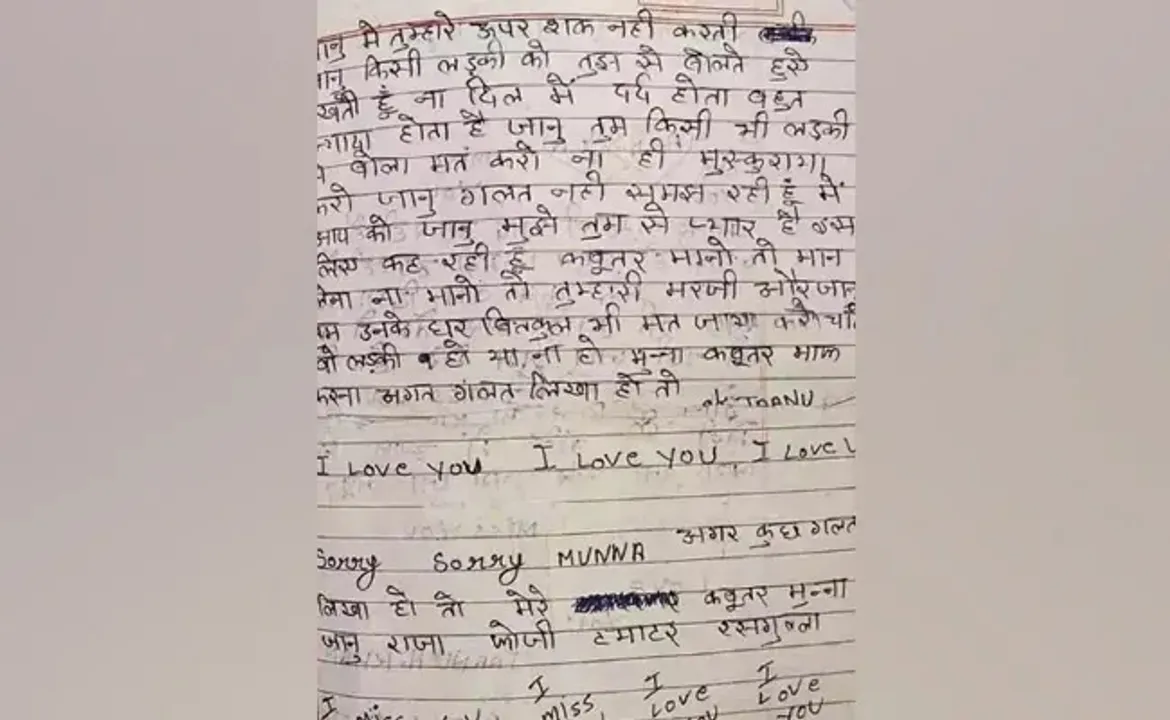 जानु मे तुम्हारे ऊपर शक नही करती
किसी लड़की को तुझ से बोलते हुऐ
हूँ ना दिल में दर्द होता बहुत
होता है जानु तुम किसी भी लड़की
बोला मतं करो ना ही मुस्कुराया
करो जानु गलत नही समझ रही हूँ में
आप को जानु मुझे तुम से प्यार है इस
लिए कह रही हूँ कबूतर मानो तो मान
लेना ना मानो तो तुम्हारी मरजी और जानु
उनके घर बिलकुल भी मत जाया करो चाहे
वो लड़की हो या ना हो मुन्ना कबूतर माफ
करना अगत गलत लिखा हो तो
I Love you I Love you I Love
Sorry Sorry MUNNA अगर कुछ गलत
लिखा हो तो मेरे कबूतर मुन्ना
जानु राजा फोजी टमाटर रसगुल्ला
I I I
miss Love Love
you